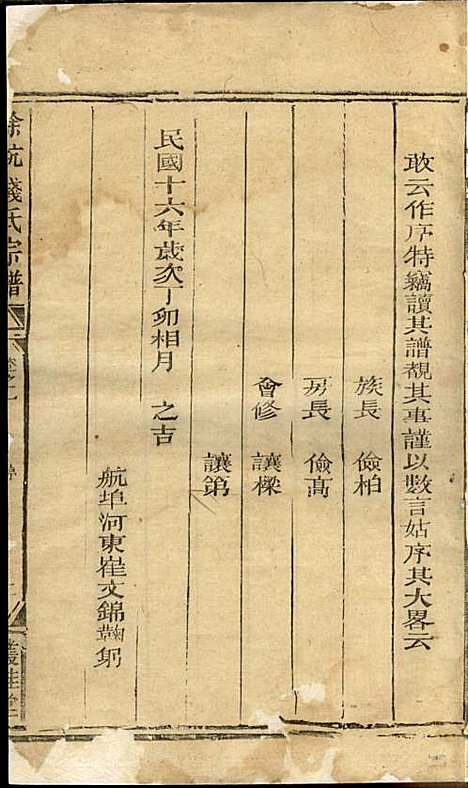 敢云作序特竊讀其譜覩其事謹以數言姑序其大畧云
族長 儉柏
房長 儉高
會修 讓樑
讓第
民國十六年歲次丁卯相月 之吉
航埠河東崔文錦鞠躬
餘杭錢氏宗譜